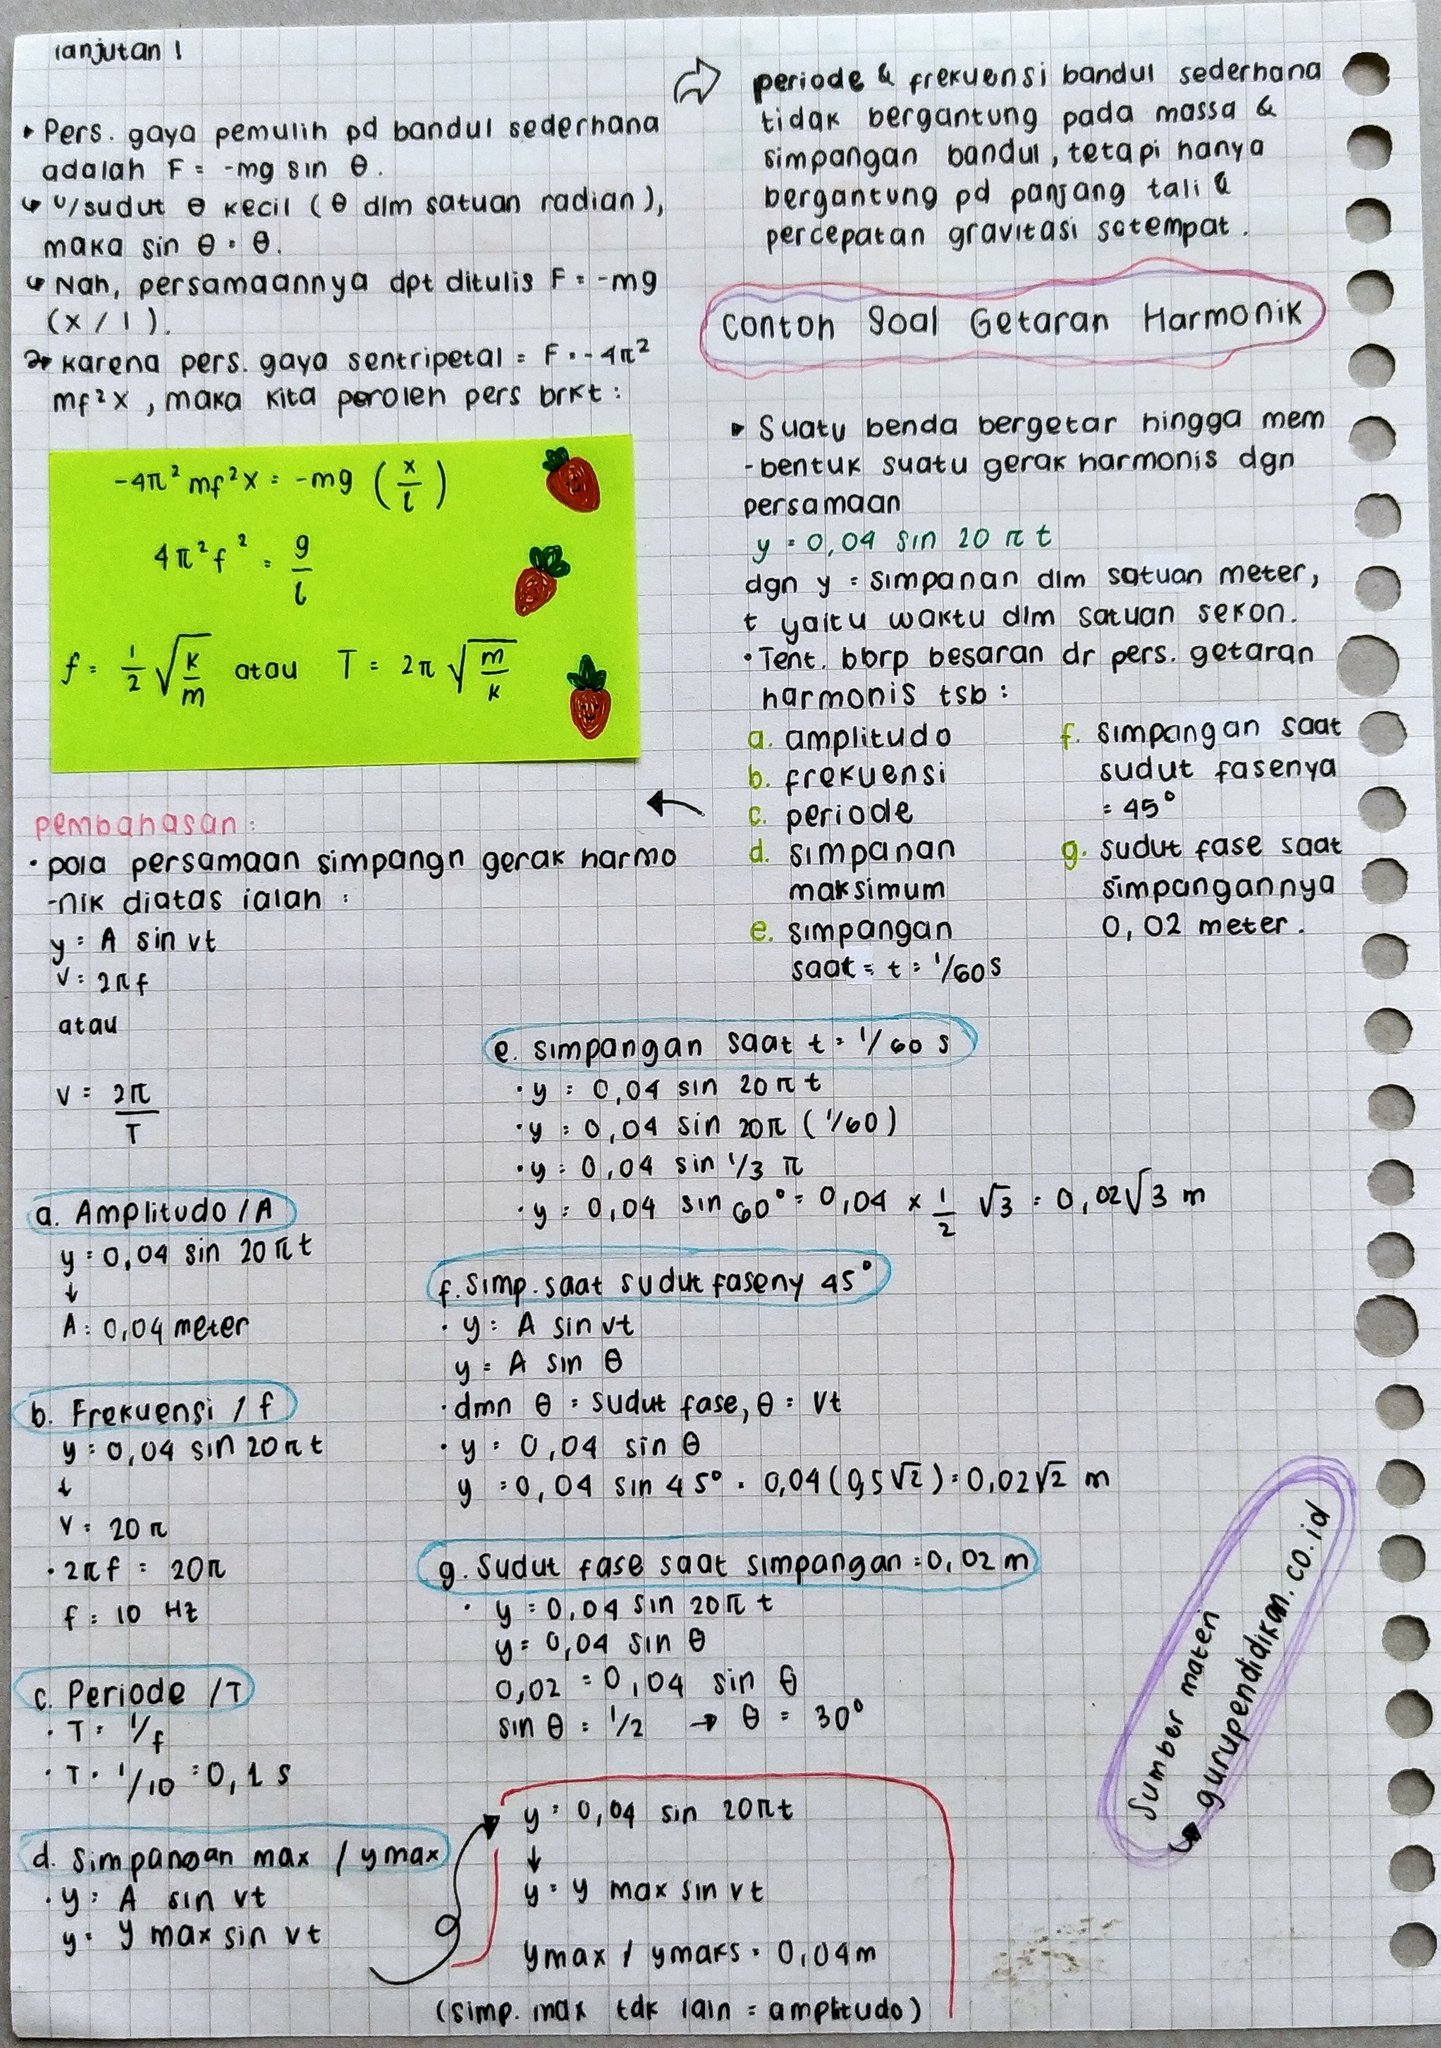 lanjutan 1
• Pers. gaya pemulih pd bandul sederhana
adalah F = -mg sin θ.
↳ U/sudut θ kecil (θ dlm satuan radian),
maka sin θ = θ.
↳ Nah, persamaannya dpt ditulis F = -mg
(x / l).
↳ karena pers. gaya sentripetal = F = -4π²
mf²x, maka kita peroleh pers brkt :
-4π² mf²x = -mg (x/l)
4π²f² = g/l
f = 1/2 √k/m atau T = 2π √m/k
⇨ periode & frekuensi bandul sederhana
tidak bergantung pada massa &
simpangan bandul, tetapi hanya
bergantung pd panjang tali &
percepatan gravitasi setempat.
Contoh Soal Getaran Harmonik
▸ Suatu benda bergetar hingga mem
-bentuk suatu gerak harmonis dgn
persamaan
y = 0,04 sin 20 π t
dgn y = simpanan dlm satuan meter,
t yaitu waktu dlm satuan sekon.
• Tent. bbrp besaran dr pers. getaran
harmonis tsb :
a. amplitudo
b. frekuensi
c. periode
d. simpanan
maksimum
e. simpangan
saat = t = 1/60 s
f. simpangan saat
sudut fasenya
= 45°
g. sudut fase saat
simpangannya
0,02 meter.
←
pembahasan :
• pola persamaan simpangn gerak harmo
-nik diatas ialah :
y = A sin vt
v = 2πf
atau
v = 2π/T
a. Amplitudo /A
y = 0,04 sin 20πt
↓
A = 0,04 meter
b. Frekuensi / f
y = 0,04 sin 20πt
↓
v = 20π
• 2πf = 20π
f = 10 Hz
c. Periode /T
• T = 1/f
• T = 1/10 = 0,1 s
d. Simpangan max / ymax
• y = A sin vt
y = y max sin vt
e. simpangan saat t = 1/60 s
• y = 0,04 sin 20πt
• y = 0,04 sin 20π (1/60)
• y = 0,04 sin 1/3 π
• y = 0,04 sin 60° = 0,04 × 1/2 √3 = 0,02√3 m
f. Simp. saat sudut faseny 45°
• y = A sin vt
y = A sin θ
• dmn θ = sudut fase, θ = vt
• y = 0,04 sin θ
y = 0,04 sin 45° = 0,04 (0,5√2) = 0,02√2 m
g. Sudut fase saat simpangan = 0,02 m
• y = 0,04 sin 20π t
y = 0,04 sin θ
0,02 = 0,04 sin θ
sin θ = 1/2 → θ = 30°
y = 0,04 sin 20πt
↓
y = y max sin vt
ymax / ymaks = 0,04m
(simp. max tdk lain = amplitudo)
Sumber materi
↳ gurupendidikan.co.id